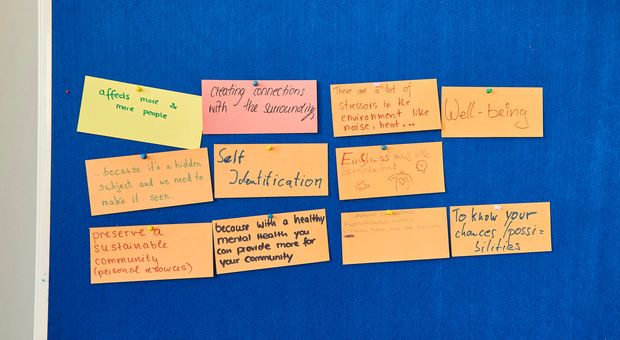 affects more &
more people
creating connections
with the surroundings
There are a lot of
stressors in the
environment like
noise, heat...
Well-being
...because it's a hidden
subject and we need to
make it seen.
Self
Identification
Einfluss auf alle
Bereiche
preserve a
sustainable
community
(personal resources)
because with a healthy
mental Health you
can provide more for
your community
To know your
chances/possi=
bilities